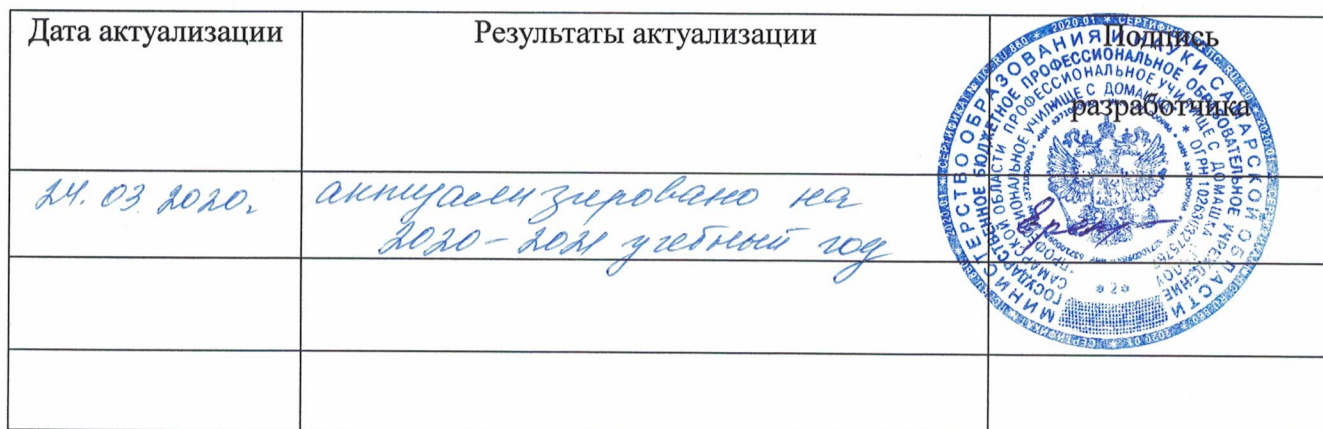 Дата актуализации
Результаты актуализации
Подпись
разработчика
24.03.2020.
актуализировано на
2020-2021 учебный год
МИНИСТЕРСТВО ОБРАЗОВАНИЯ И НАУКИ САМАРСКОЙ ОБЛАСТИ
ГОСУДАРСТВЕННОЕ БЮДЖЕТНОЕ ПРОФЕССИОНАЛЬНОЕ ОБРАЗОВАТЕЛЬНОЕ УЧРЕЖДЕНИЕ
САМАРСКОЙ ОБЛАСТИ ПРОФЕССИОНАЛЬНОЕ УЧИЛИЩЕ С ДОМАШКА
* 2 *